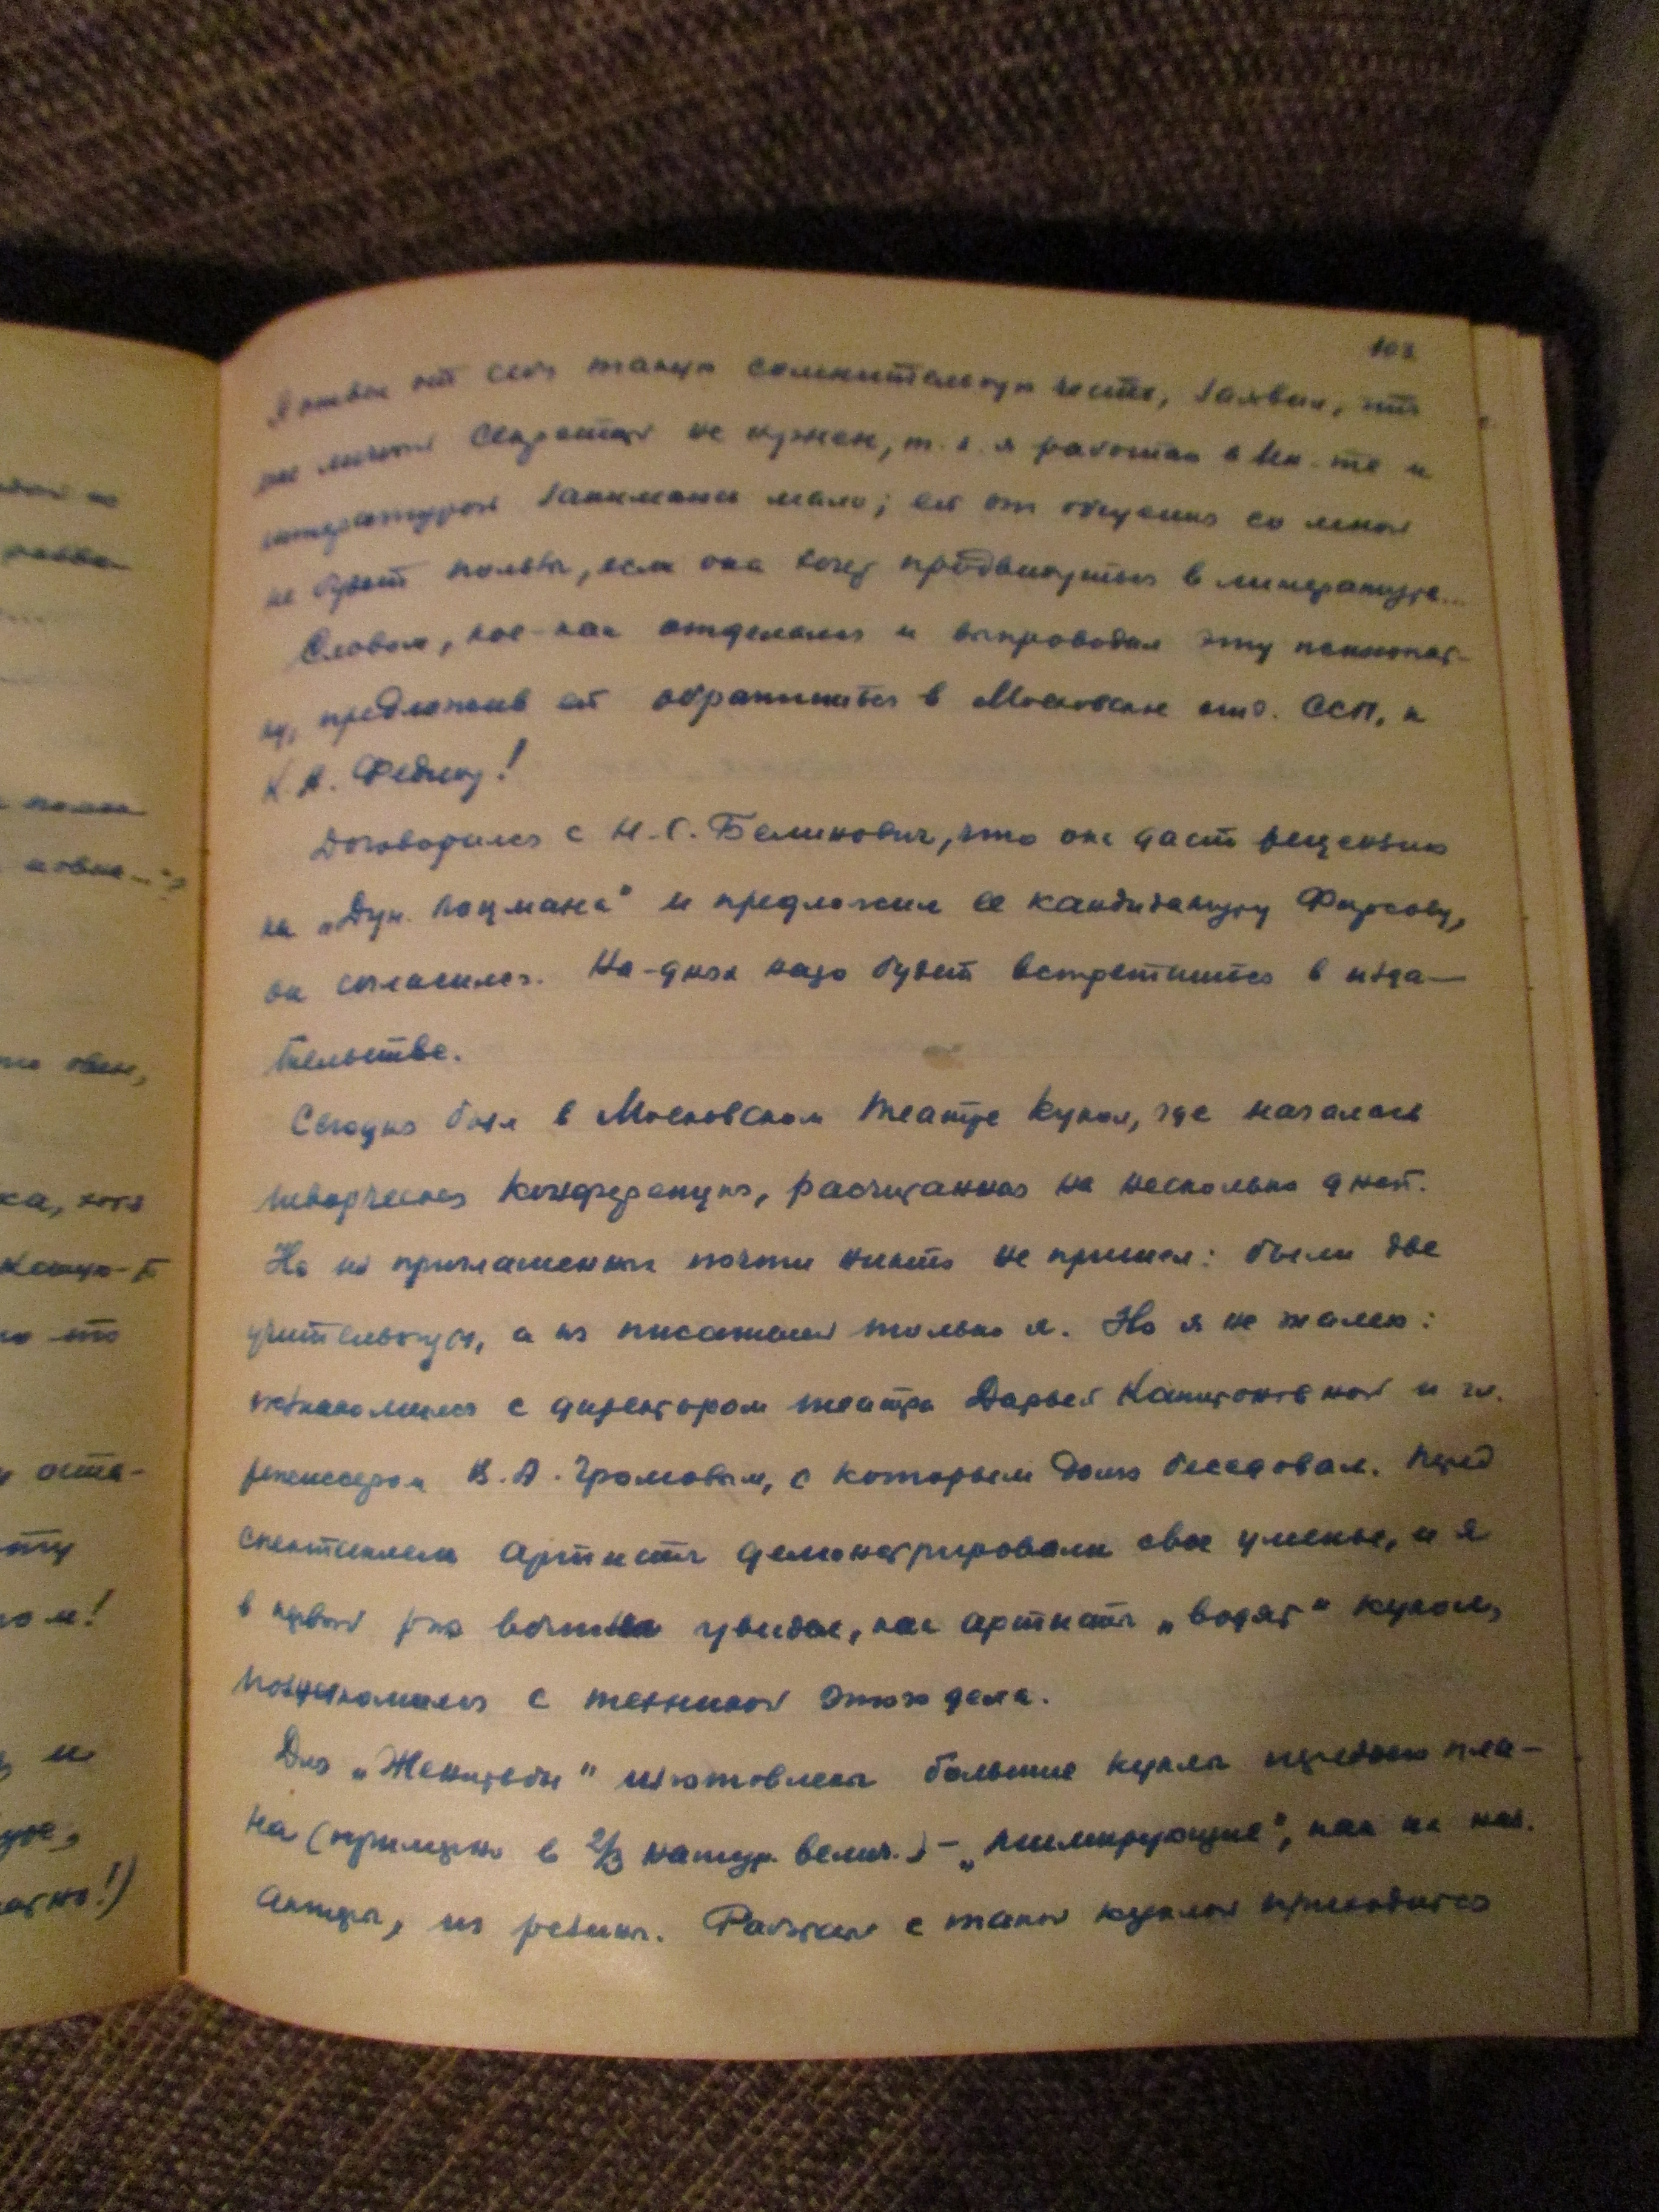 103
Я отвел от себя такую сомнительную честь, заявил, что
мне личный секретарь не нужен, т.к. я работаю в Ин-те и
литературой занимаюсь мало; ей от общения со мной
не будет пользы, если она хочет продвинуться в литературе...
Словом, кое-как отделался и выпроводил эту психопат-
ку, предложив ей обратиться в Московское отд. ССП, к
К.А. Федину!
Договорился с Н.С. Белинович, что она даст рецензию
на „Дун. лоцмана" и предложил ее кандидатуру Фирсову,
он согласился. На-днях надо будет встретиться в изда-
тельстве.
Сегодня был в Московском театре кукол, где началась
творческая конференция, расчитанная на несколько дней.
Но из приглашенных почти никто не пришел: были две
учительницы, а из писателей только я. Но я не жалею:
познакомился с директором театра Дарьей Капитоновной и гл.
режиссером В.А. Громовым, с которым долго беседовал. Перед
спектаклем артисты демонстрировали свое уменье, и я
в первый раз увидал, как артисты „водят" кукол,
познакомился с техникой этого дела.
Для „Женитьбы" изготовлены большие куклы переднего пла-
на (примерно в 2/3 натур. велич.) – „мимирующие", как их наз.
актеры, из резины. Работать с такой куклой приходится
ка, хотя
оста-
ом!
и